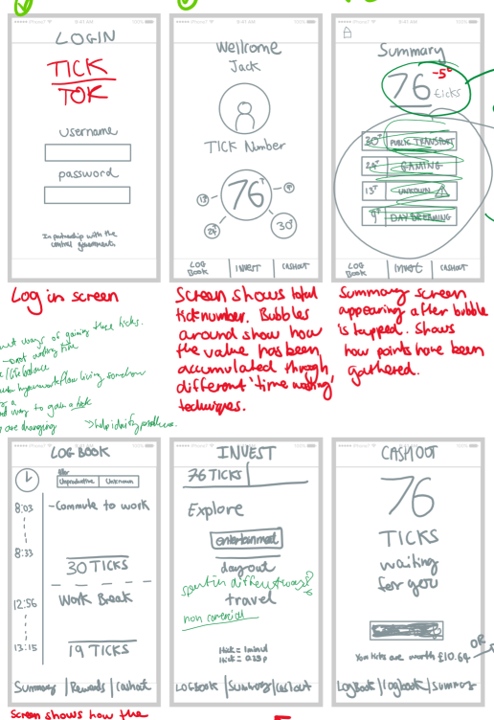 LOGIN
TICK
TOK
username
password
In partnership with the
central government.
Log in screen
Wellcome
Jack
TICK Number
76T
30T
LOG
BOOK
INVEST
CASHOUT
Screen shows total
tick number. Bubbles
around show how
the value has been
accumulated through
different 'time wasting'
techniques.
Summary
76
-5°
ticks
30T PUBLIC TRANSPORT
24T GAMING
13T UNKNOWN
9T DAY DREAMING
LOG
BOOK
INVEST
CASHOUT
Summary screen
appearing after bubble
is tapped. Shows
how points have been
gathered.
ways of gaining these ticks.
life balance
way to gain a tick
are changing
LOG BOOK
Unproductive Unknown
8:03
- Commute to work
8:33
30 TICKS
12:56
Work Break
13:15
19 TICKS
Summary | Rewards | Cashout
Screen shows how the
INVEST
76 TICKS
Explore
entertainment
day out
spent in different ways?
travel
non comercial
1 tick = 1 minute
LOGBOOK | Summary | Cashout
CASHOUT
76
TICKS
waiting
for you
You ticks are worth £10.64
OR
LogBook | logbook | Summary